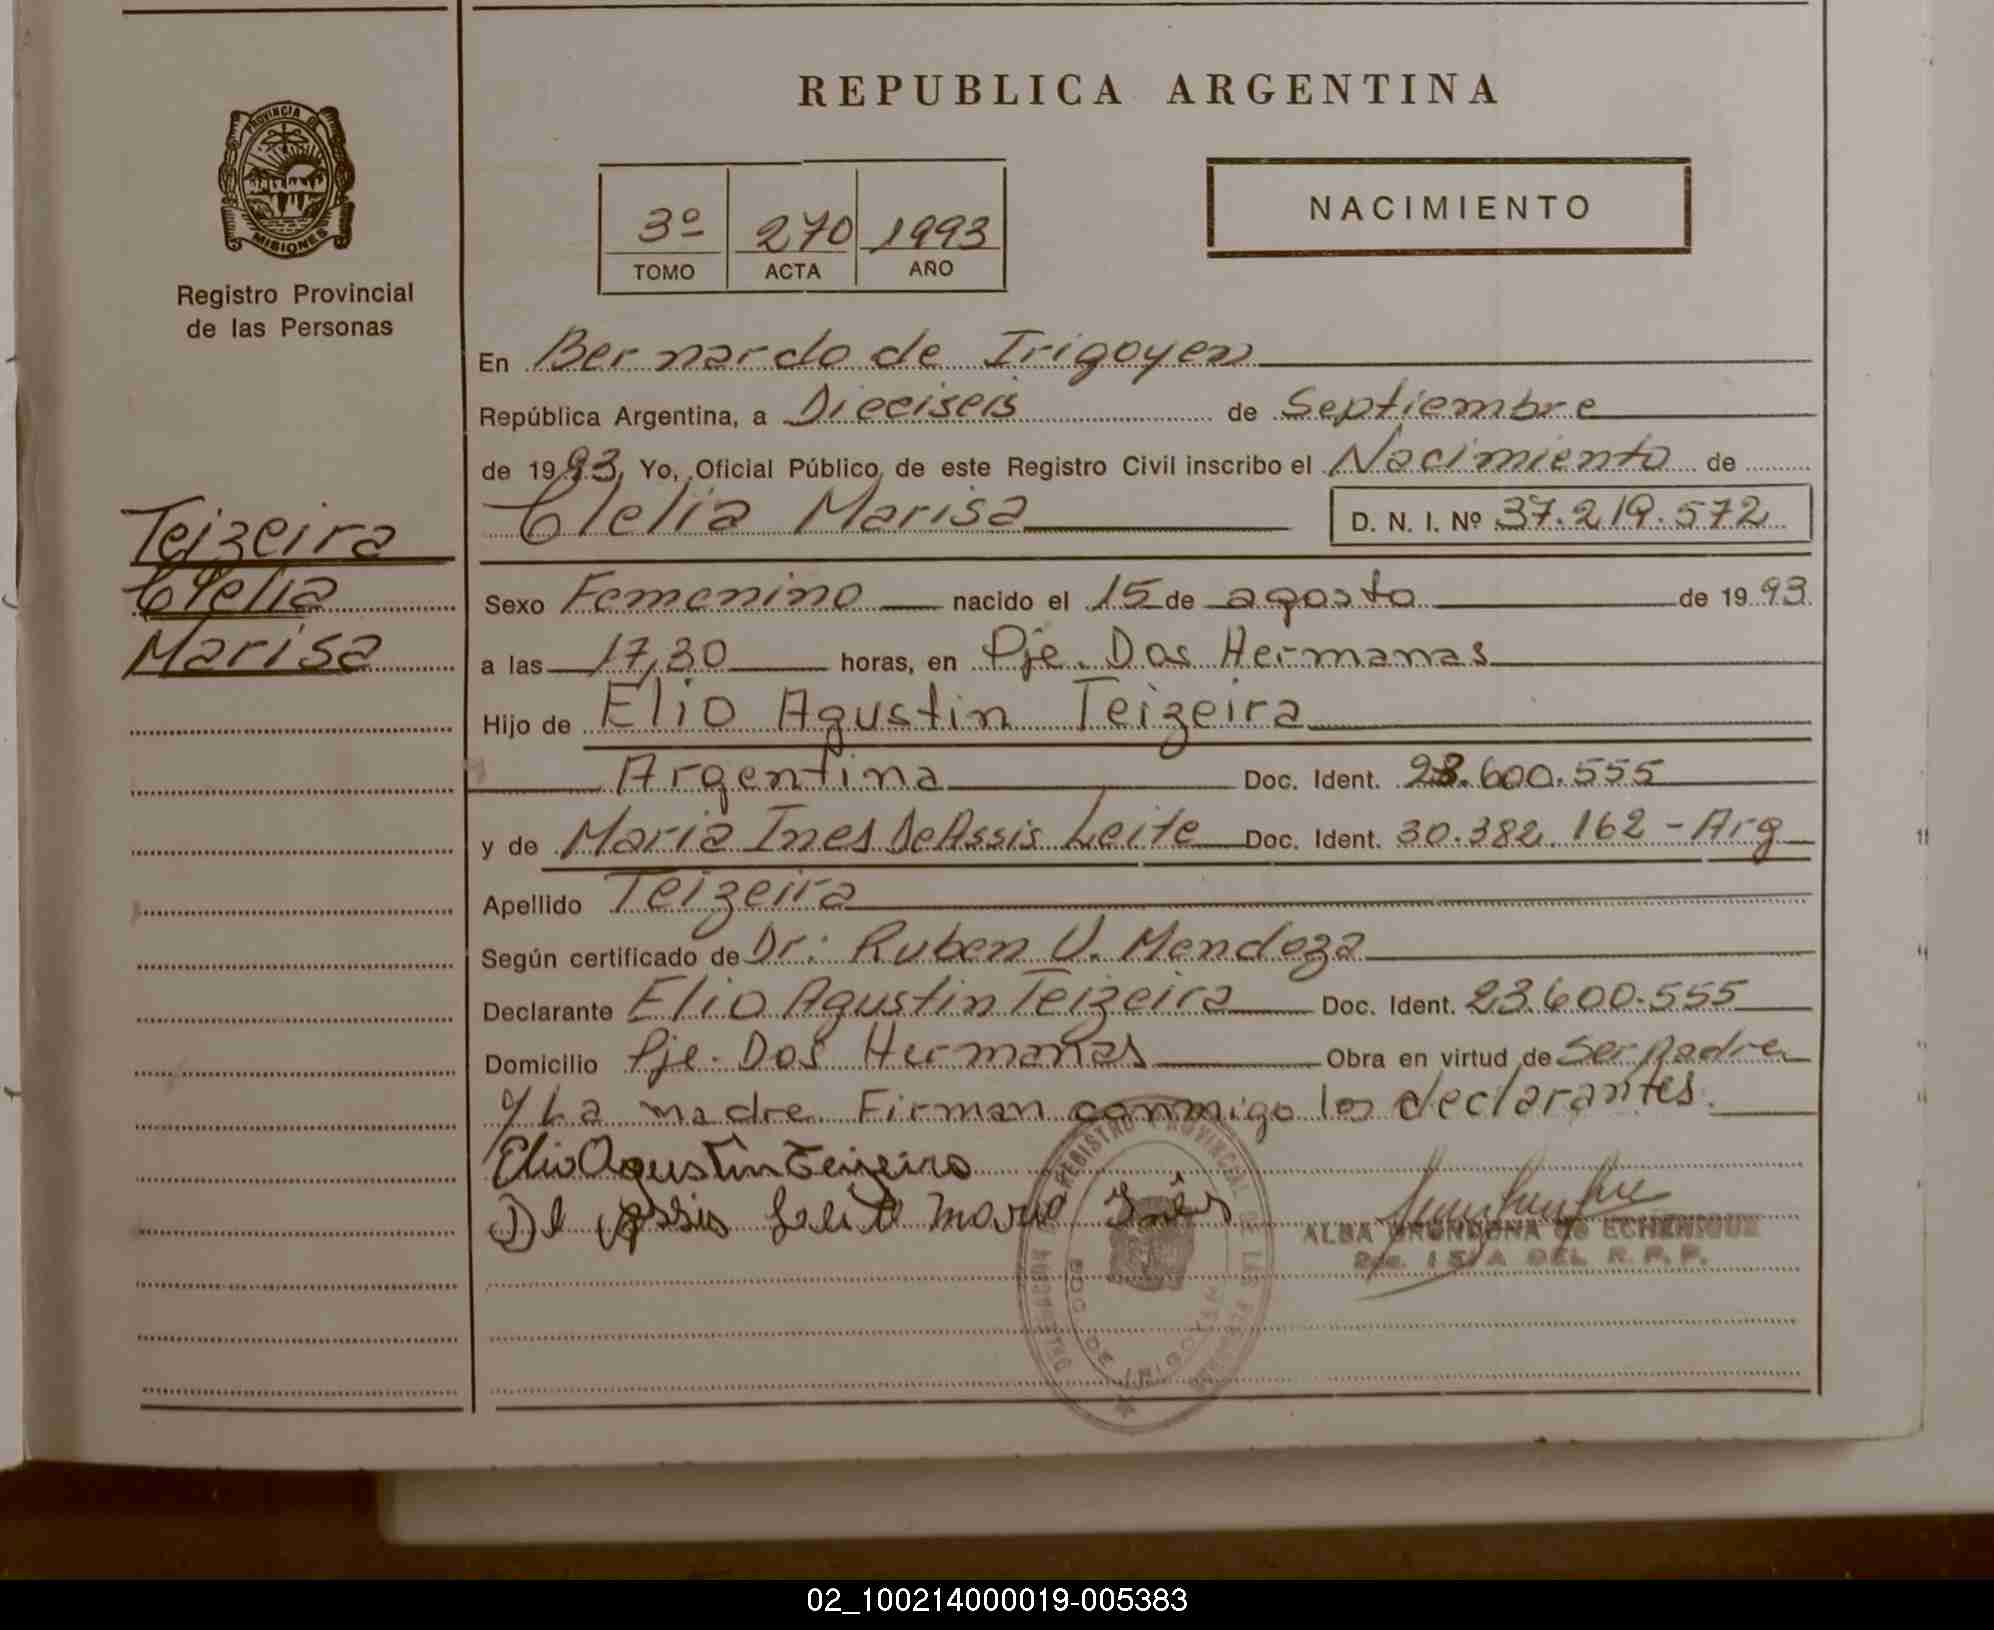 REPUBLICA ARGENTINA
PROVINCIA DE
MISIONES
Registro Provincial
de las Personas
3º 270 1993
TOMO ACTA AÑO
NACIMIENTO
En Bernardo de Irigoyen
República Argentina, a Dieciseis de Septiembre
de 1993, Yo, Oficial Público, de este Registro Civil inscribo el Nacimiento de
Clelia Marisa D. N. I. Nº 37.219.572
Teizeira
Clelia
Marisa
Sexo Femenino nacido el 15 de agosto de 1993
a las 17,30 horas, en Pje. Dos Hermanas
Hijo de Elio Agustin Teizeira
Argentina Doc. Ident. 23.600.555
y de Maria Ines DeAssis Leite Doc. Ident. 30.382.162 - Arg
Apellido Teizeira
Según certificado de Dr: Ruben V. Mendoza
Declarante Elio Agustin Teizeira Doc. Ident. 23.600.555
Domicilio Pje. Dos Hermanas Obra en virtud de Ser padre
y La madre. Firman conmigo los declarantes.
Elio Agustin Teizeira
De Assis Leite Maria Inês
ALBA GRONDONA de ECHENIQUE
DEL R. P. P.
REGISTRO PROVINCIAL DE LAS PERSONAS
BDO. DE IRIGOYEN
02_100214000019-005383